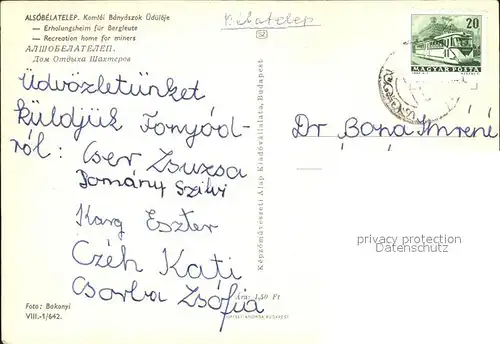 ALSÓBÉLATELEP. Komlói Bányászok Üdülője
— Erholungsheim für Bergleute
— Recreation home for miners
АЛШОБЕЛАТЕЛЕП.
Дом Отдыха Шахтеров
Bélatelep
52
20
MAGYAR POSTA
Üdvözletünket
küldjük Fonyód-
ról: Cser Zsuzsa
Domány Szilvi
Karg Eszter
Czéh Kati
Csorba Zsófia
Dr Bona Imréné
privacy protection
Datenschutz
Képzőművészeti Alap Kiadóvállalata, Budapest
Ára: 1,50 Ft
Foto: Bakonyi
VIII.-1/642.
OFFSET-NYOMDA BUDAPEST